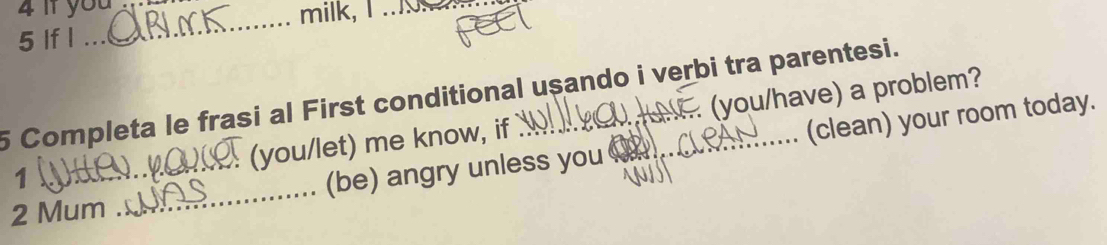 4 If you ...
5 If I ... DRINK ... milk, I ...
FEEL
5 Completa le frasi al First conditional usando i verbi tra parentesi.
1 ... you let (you/let) me know, if will you have (you/have) a problem?
2 Mum ... WAS ... (be) angry unless you ... CLEAN ... (clean) your room today.
will